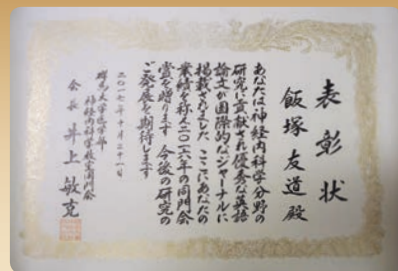 表彰状
飯塚友道殿
あなたは神経内科学分野の
研究に貢献され優秀な英語
論文が国際的なジャーナルに
掲載されました ここにあなたの
業績を称え二〇一六年の同門会
賞を贈ります 今後の研究の
ご発展を期待します
二〇一七年十月二十一日
群馬大学医学部
神経内科学教室同門会
会長 井上敏克